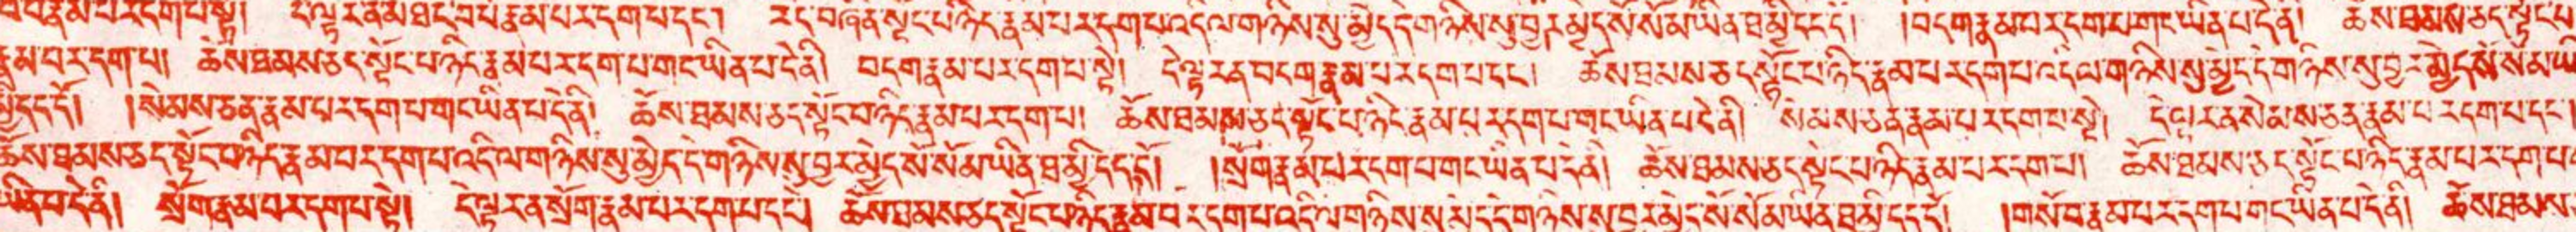 བ་རྣམ་པར་དག་པ་སྟེ། དེ་ལྟར་ན་མ་ཐད་བ་བ་རྣམ་པར་དག་པ་དང་། རང་བཞིན་སྟོང་པ་ཉིད་རྣམ་པར་དག་པ་འདི་ལ་གཉིས་སུ་མྱེད་དེ་གཉིས་སུ་བྱར་མྱེད་སོ་སོ་མ་ཡིན་ཐ་མྱི་དད་དོ། །བདག་རྣམ་པར་དག་པ་གང་ཡིན་པ་དེ་ནི། ཆོས་ཐམས་ཅད་སྟོང་པ་
རྣམ་པར་དག་པ། ཆོས་ཐམས་ཅད་སྟོང་པ་ཉིད་རྣམ་པར་དག་པ་གང་ཡིན་པ་དེ་ནི། བདག་རྣམ་པར་དག་པ་སྟེ། དེ་ལྟར་ན་བདག་རྣམ་པར་དག་པ་དང་། ཆོས་ཐམས་ཅད་སྟོང་པ་ཉིད་རྣམ་པར་དག་པ་འདི་ལ་གཉིས་སུ་མྱེད་དེ་གཉིས་སུ་བྱར་མྱེད་སོ་སོ་མ་ཡི
མྱི་དད་དོ། །སེམས་ཅན་རྣམ་པར་དག་པ་གང་ཡིན་པ་དེ་ནི། ཆོས་ཐམས་ཅད་སྟོང་པ་ཉིད་རྣམ་པར་དག་པ། ཆོས་ཐམས་ཅད་སྟོང་པ་ཉིད་རྣམ་པར་དག་པ་གང་ཡིན་པ་དེ་ནི། སེམས་ཅན་རྣམ་པར་དག་པ་སྟེ། དེ་ལྟར་ན་སེམས་ཅན་རྣམ་པར་དག་པ་དང་
ཆོས་ཐམས་ཅད་སྟོང་པ་ཉིད་རྣམ་པར་དག་པ་འདི་ལ་གཉིས་སུ་མྱེད་དེ་གཉིས་སུ་བྱར་མྱེད་སོ་སོ་མ་ཡིན་ཐ་མྱི་དད་དོ། །སྲོག་རྣམ་པར་དག་པ་གང་ཡིན་པ་དེ་ནི། ཆོས་ཐམས་ཅད་སྟོང་པ་ཉིད་རྣམ་པར་དག་པ། ཆོས་ཐམས་ཅད་སྟོང་པ་ཉིད་རྣམ་པར་དག་པ་
ཡིན་པ་དེ་ནི། སྲོག་རྣམ་པར་དག་པ་སྟེ། དེ་ལྟར་ན་སྲོག་རྣམ་པར་དག་པ་དང་། ཆོས་ཐམས་ཅད་སྟོང་པ་ཉིད་རྣམ་པར་དག་པ་འདི་ལ་གཉིས་སུ་མེད་དེ་གཉིས་སུ་བྱར་མེད་སོ་སོ་མ་ཡིན་ཐ་མི་དད་དོ། །གསོ་བ་རྣམ་པར་དག་པ་གང་ཡིན་པ་དེ་ནི། ཆོས་ཐམས་